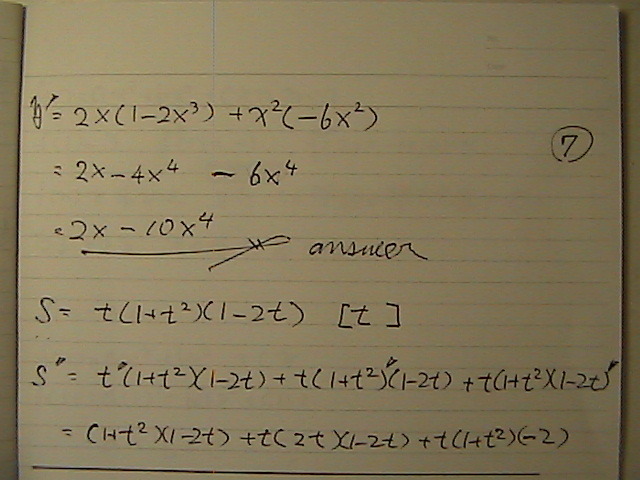 y' = 2x(1-2x³) + x²(-6x²)
⑦
= 2x - 4x⁴ - 6x⁴
= 2x - 10x⁴ answer
S = t(1+t²)(1-2t) [t]
S' = t'(1+t²)(1-2t) + t(1+t²)'(1-2t) + t(1+t²)(1-2t)'
= (1+t²)(1-2t) + t(2t)(1-2t) + t(1+t²)(-2)